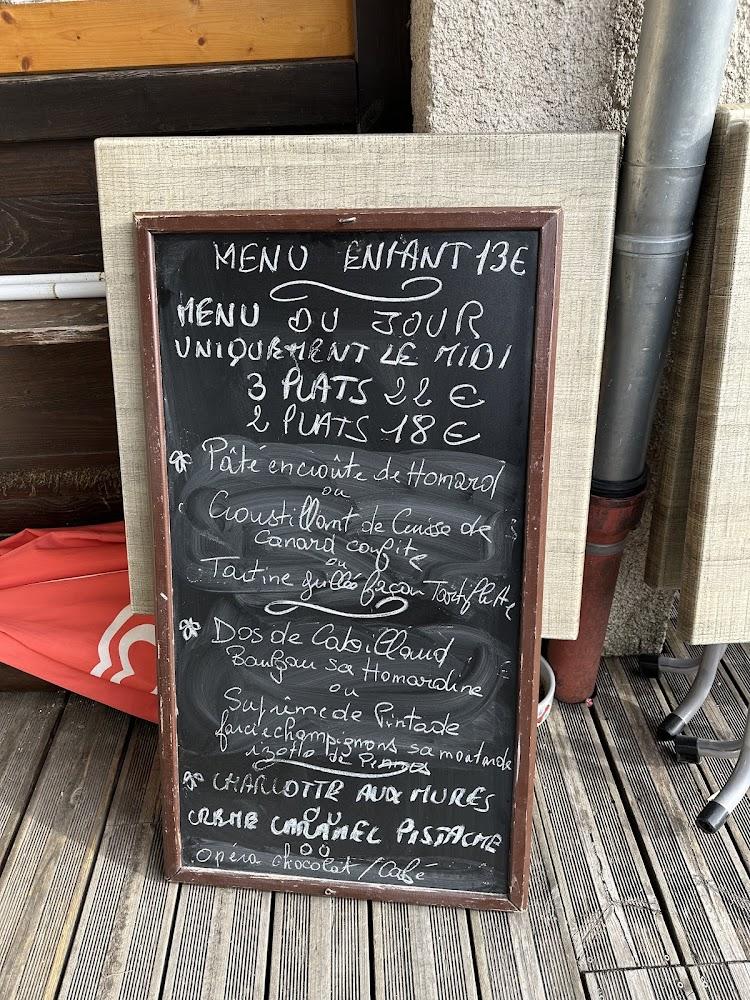 MENU ENFANT 13€
MENU DU JOUR
UNIQUEMENT LE MIDI
3 PLATS 22 €
2 PLATS 18 €
Pâté en croûte de Homard
ou
Croustillant de Cuisse de
Canard confite
ou
Tartine grillée façon Tartiflette
Dos de Cabillaud
sa Homardine
ou
Suprême de Pintade
farcie champignons sa moutarde
de
CHARLOTTE AUX MURES
OU
CREME CARAMEL PISTACHE
OÙ
Opéra chocolat / Café